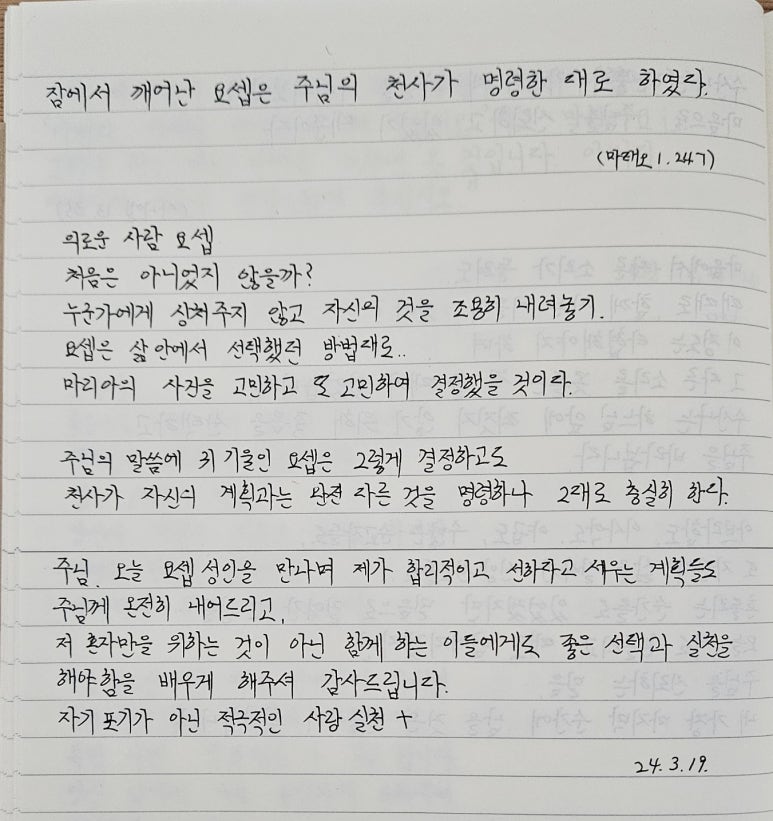 잠에서 깨어난 요셉은 주님의 천사가 명령한 대로 하였다.
(마태오 1.24ㄱ)
의로운 사람 요셉
처음은 아니었지 않을까?
누군가에게 상처주지 않고 자신의 것을 조용히 내려놓기.
요셉은 삶 안에서 선택했던 방법대로..
마리아의 사건을 고민하고 또 고민하여 결정했을 것이다.
주님의 말씀에 귀 기울인 요셉은 그렇게 결정하고도
천사가 자신의 계획과는 완전 다른 것을 명령하나 그대로 충실히 한다.
주님. 오늘 요셉 성인을 만나며 제가 합리적이고 선하다고 세우는 계획들도
주님께 온전히 내어드리고,
저 혼자만을 위하는 것이 아닌 함께 하는 이들에게도 좋은 선택과 실천을
해야함을 배우게 해주셔 감사드립니다.
자기 포기가 아닌 적극적인 사랑 실천 +
24.3.19.